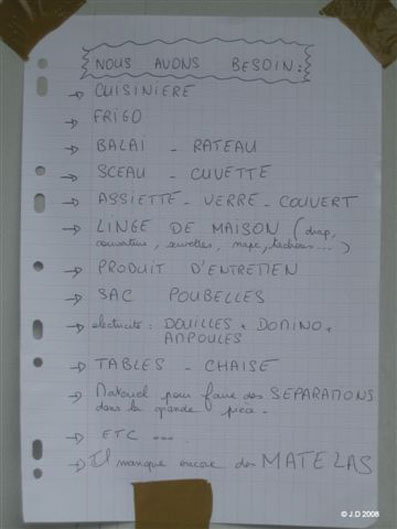 NOUS AVONS BESOIN :
→ CUISINIERE
→ FRIGO
→ BALAI - RATEAU
→ SCEAU - CUVETTE
→ ASSIETTE - VERRE - COUVERT
→ LINGE DE MAISON (drap,
couverture, serviettes, nape, torchons...)
→ PRODUIT D'ENTRETIEN
→ SAC POUBELLES
→ electricité : DOUILLES + DOMINO +
AMPOULES
→ TABLES - CHAISE
→ Materiel pour faire des SEPARATIONS
dans la grande pièce.
→ ETC ....
→ Il manque encore des MATELAS
© J.D 2008